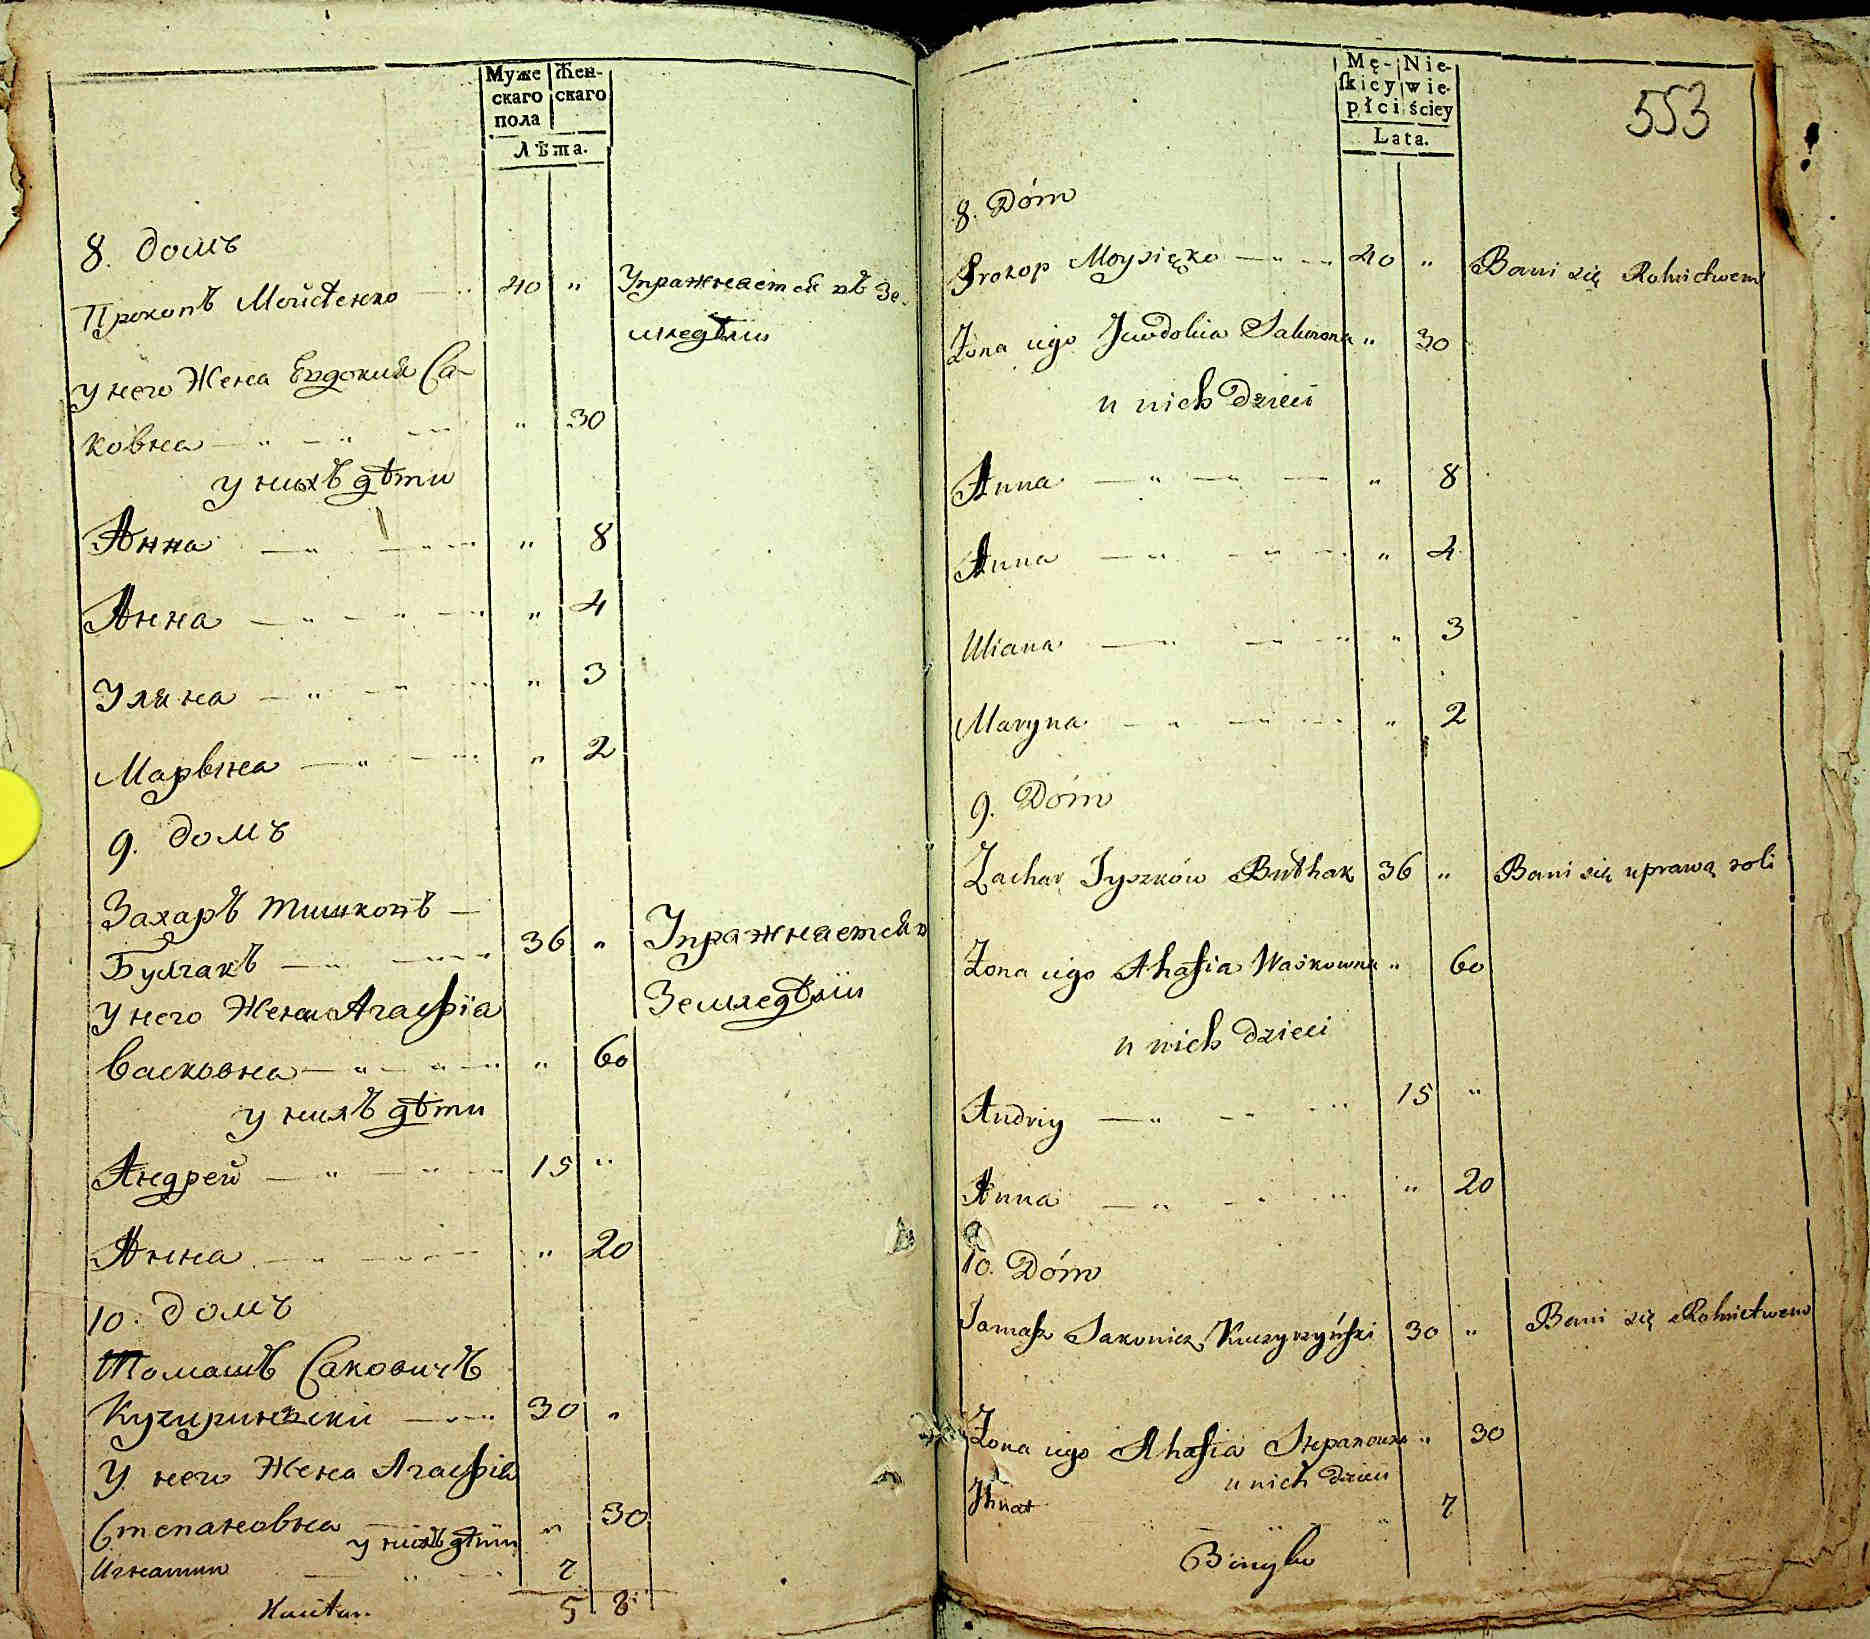 Муже
скаго
пола
Жен-
скаго
Лѣта.
8. домъ
Прокопъ Мойсѣенко — 40 " Упражнается въ Зе-
мледѣліи
у него Жена Евдокия Са-
ковна — " — " — " 30
у нихъ дѣти
Анна — " — " 8
Анна — " — " 4
Уляна — " — " 3
Марвна — " — " 2
9. домъ
Захаръ Тишковъ —
Булгакъ — 36 " Упражнается в
Земледѣліи
у него Жена Агафіа
Васковна — " — " — " 60
у нихъ дѣти
Андрей — " — " 15 "
Анна — " — " 20
10. домъ
Томашъ Саковичъ
Кучиринский — 30 "
У него Жена Агафіа
Степановна — " 30
у нихъ дѣти
Игнатий — " — 7
5 8
Mę-
ſkiey
płci
Nie-
wie-
ściey
Lata.
553
8. Dóm
Prokop Moysięko — " — 40 " Bawi się Rolnictwem
Żona iego Jewdokia Sakowna " 30
u nich Dzieci
Anna — " — " — " 8
Anna — " — " — " 4
Uliana — " — " — " 3
Maryna — " — " — " 2
9. Dóm
Zachar Tyszków Bułhak 36 " Bawi się uprawą roli
Żona iego Ahafia Waśkowna " 60
u nich dzieci
Andriy — " — " 15 "
Anna — " — " " 20
10. Dóm
Tamasz Sakowicz Kuczyryńſki 30 " Bawi się Rolnictwem
Żona iego Ahafia Stepanowna " 30
u nich Dzieci
Ihnat 7